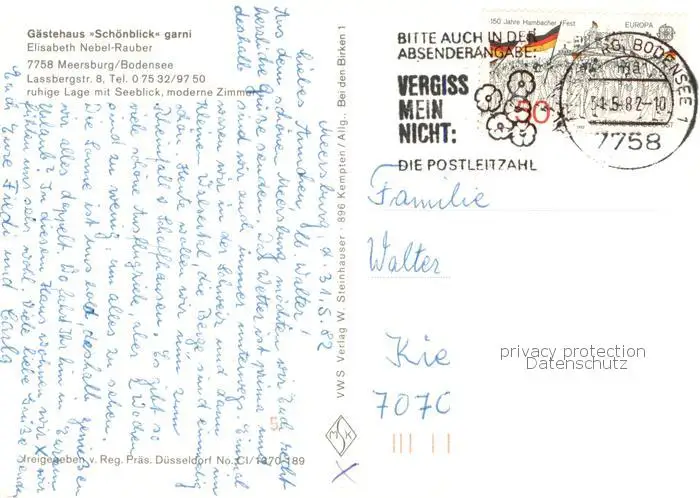 Gästehaus »Schönblick« garni
Elisabeth Nebel-Rauber
7758 Meersburg/Bodensee
Lassbergstr. 8, Tel. 0 75 32/97 50
ruhige Lage mit Seeblick, moderne Zimmer
Meersburg, d. 31.5.82
Liebes Annchen, Walter!
Aus dem schönen Meersburg möchten wir Euch recht
herzliche Grüße senden. Das Wetter ist prima und
deshalb sind wir auch immer unterwegs. Einmal
waren wir in der Schweiz und dann im
kleinen Walsertal, die Berge sind einmalig
schön. Heute wollen wir nun zum
Rheinfall n. Schaffhausen. Es gibt so
viele schöne Ausflugziele, aber 2 Wochen
sind zu wenig, um alles zu sehen.
Die Sonne ist uns hold, deshalb genießen
wir alles doppelt. Wo fahrt Ihr hin in Eurem
Urlaub? In diesem Haus wohnen wir X wir
fühlen uns sehr wohl. Viele liebe Grüße sendet
Euch Eure Fredi und Carla
Freigegeben v. Reg. Präs. Düsseldorf No. CI/1370-189
VWS Verlag W. Steinhauser · 896 Kempten/Allg. Bei den Birken 1
MSK
5
X
BITTE AUCH IN DER
ABSENDERANGABE:
VERGISS
MEIN
NICHT:
DIE POSTLEITZAHL
150 Jahre Hambacher Fest
EUROPA
50
BODENSEE 1
31.5.82-10
7758
Familie
Walter
Kie
7070
privacy protection
Datenschutz